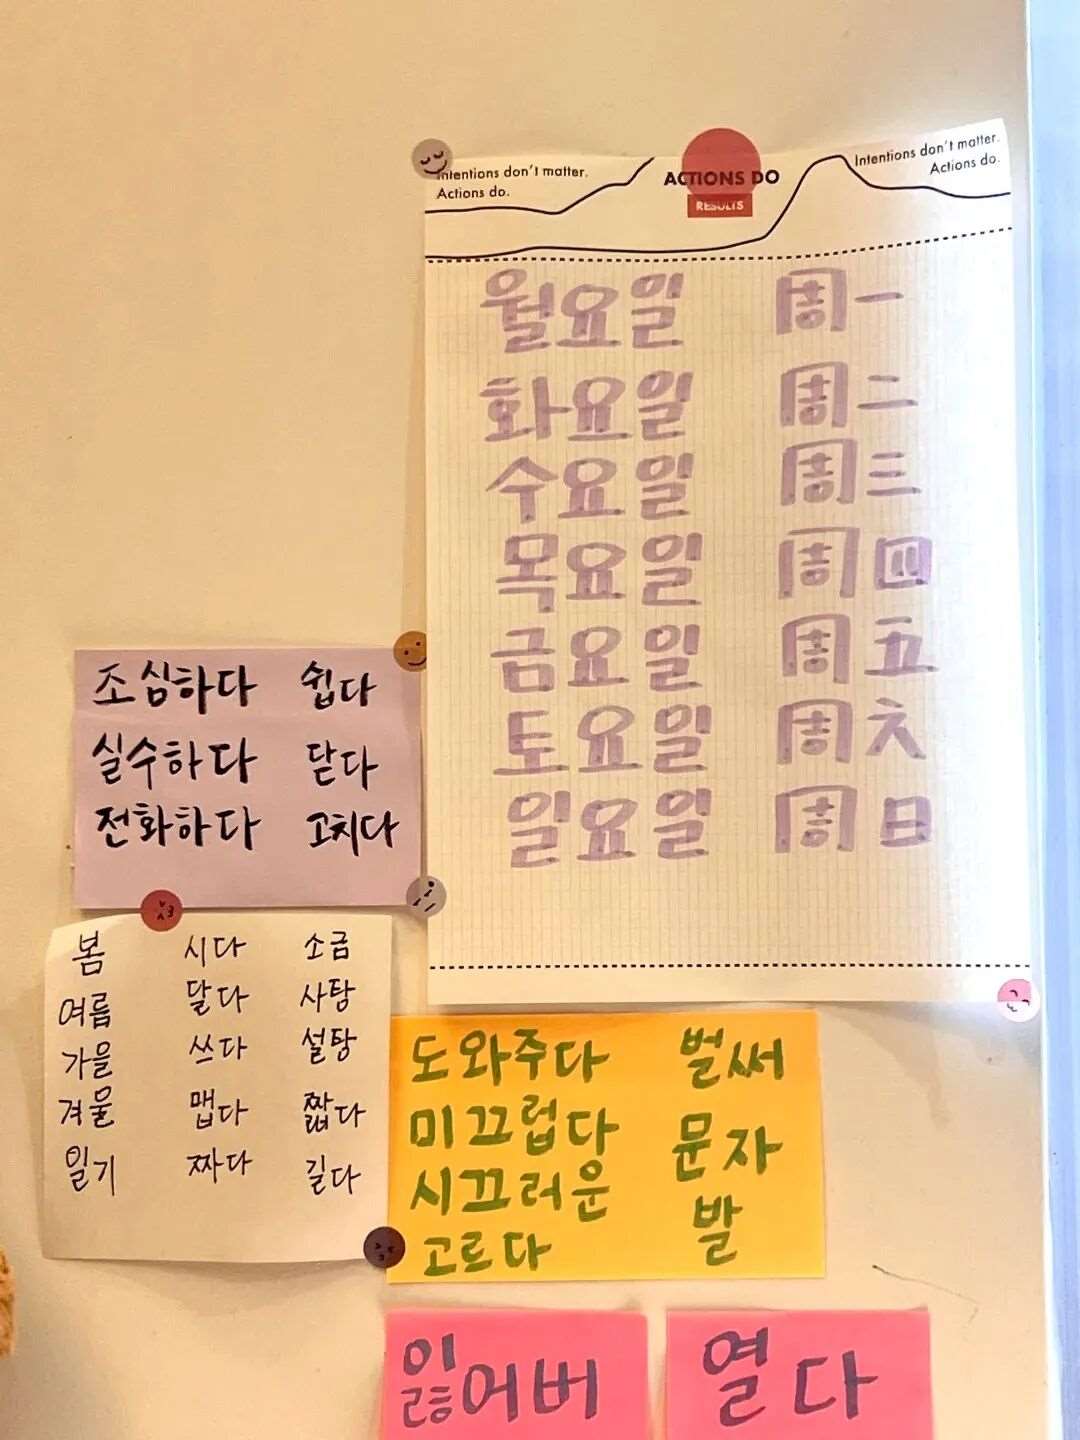 Intentions don't matter.
Actions do.
ACTIONS DO
RESULTS
Intentions don't matter.
Actions do.
월요일 周一
화요일 周二
수요일 周三
목요일 周四
금요일 周五
토요일 周六
일요일 周日
조심하다 쉽다
실수하다 닫다
전화하다 고치다
봄 시다 소금
여름 달다 사탕
가을 쓰다 설탕
겨울 맵다 짧다
일기 짜다 길다
도와주다 벌써
미끄럽다 문자
시끄러운 발
고르다
잃어버
열다